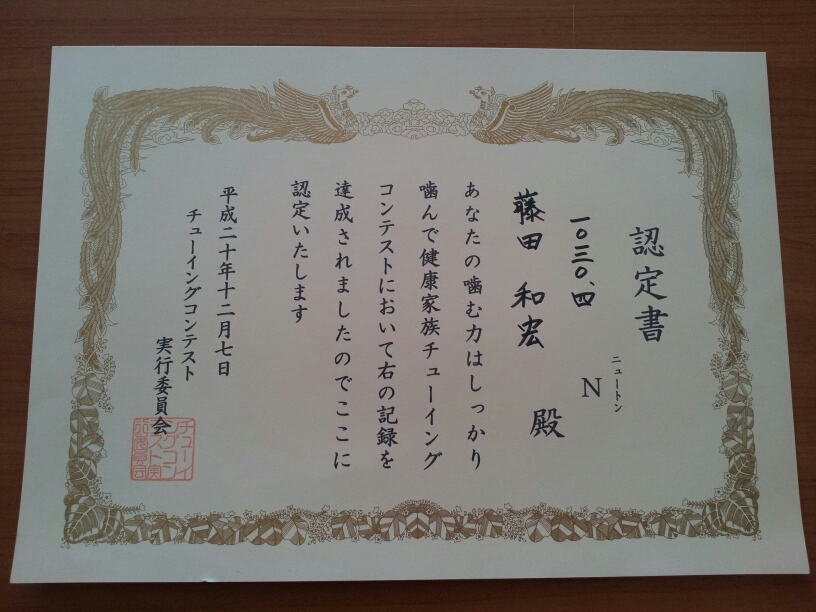 認定書
一〇三〇.四 N
ニュートン
藤田 和宏 殿
あなたの噛む力はしっかり
噛んで健康家族チューイング
コンテストにおいて右の記録を
達成されましたのでここに
認定いたします
平成二十年十二月七日
チューイングコンテスト
実行委員会
チューイ
ングコン
テスト実
行委員会